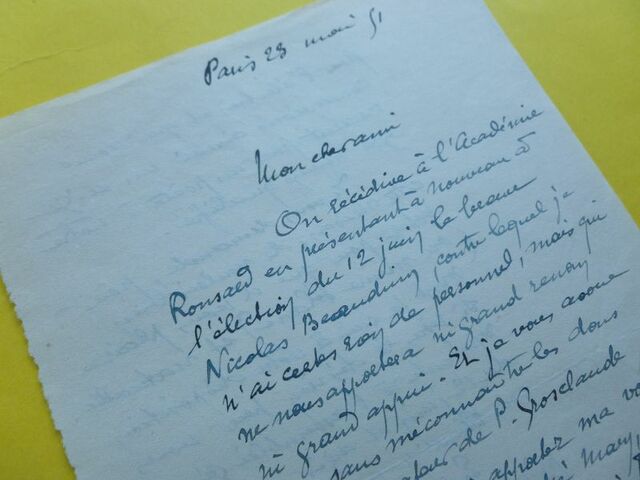 Paris 23 mai 51
Mon cher ami
On récidive à l'Académie
Ronsard en présentant à nouveau à
l'élection du 12 juin le brave
Nicolas Beauduin, contre lequel je
n'ai certes rien de personnel, mais qui
ne nous apportera ni grand renom
ni grand appui. Et je vous avoue
sans méconnaître les dons
de P. Grosclaude
apporter ma